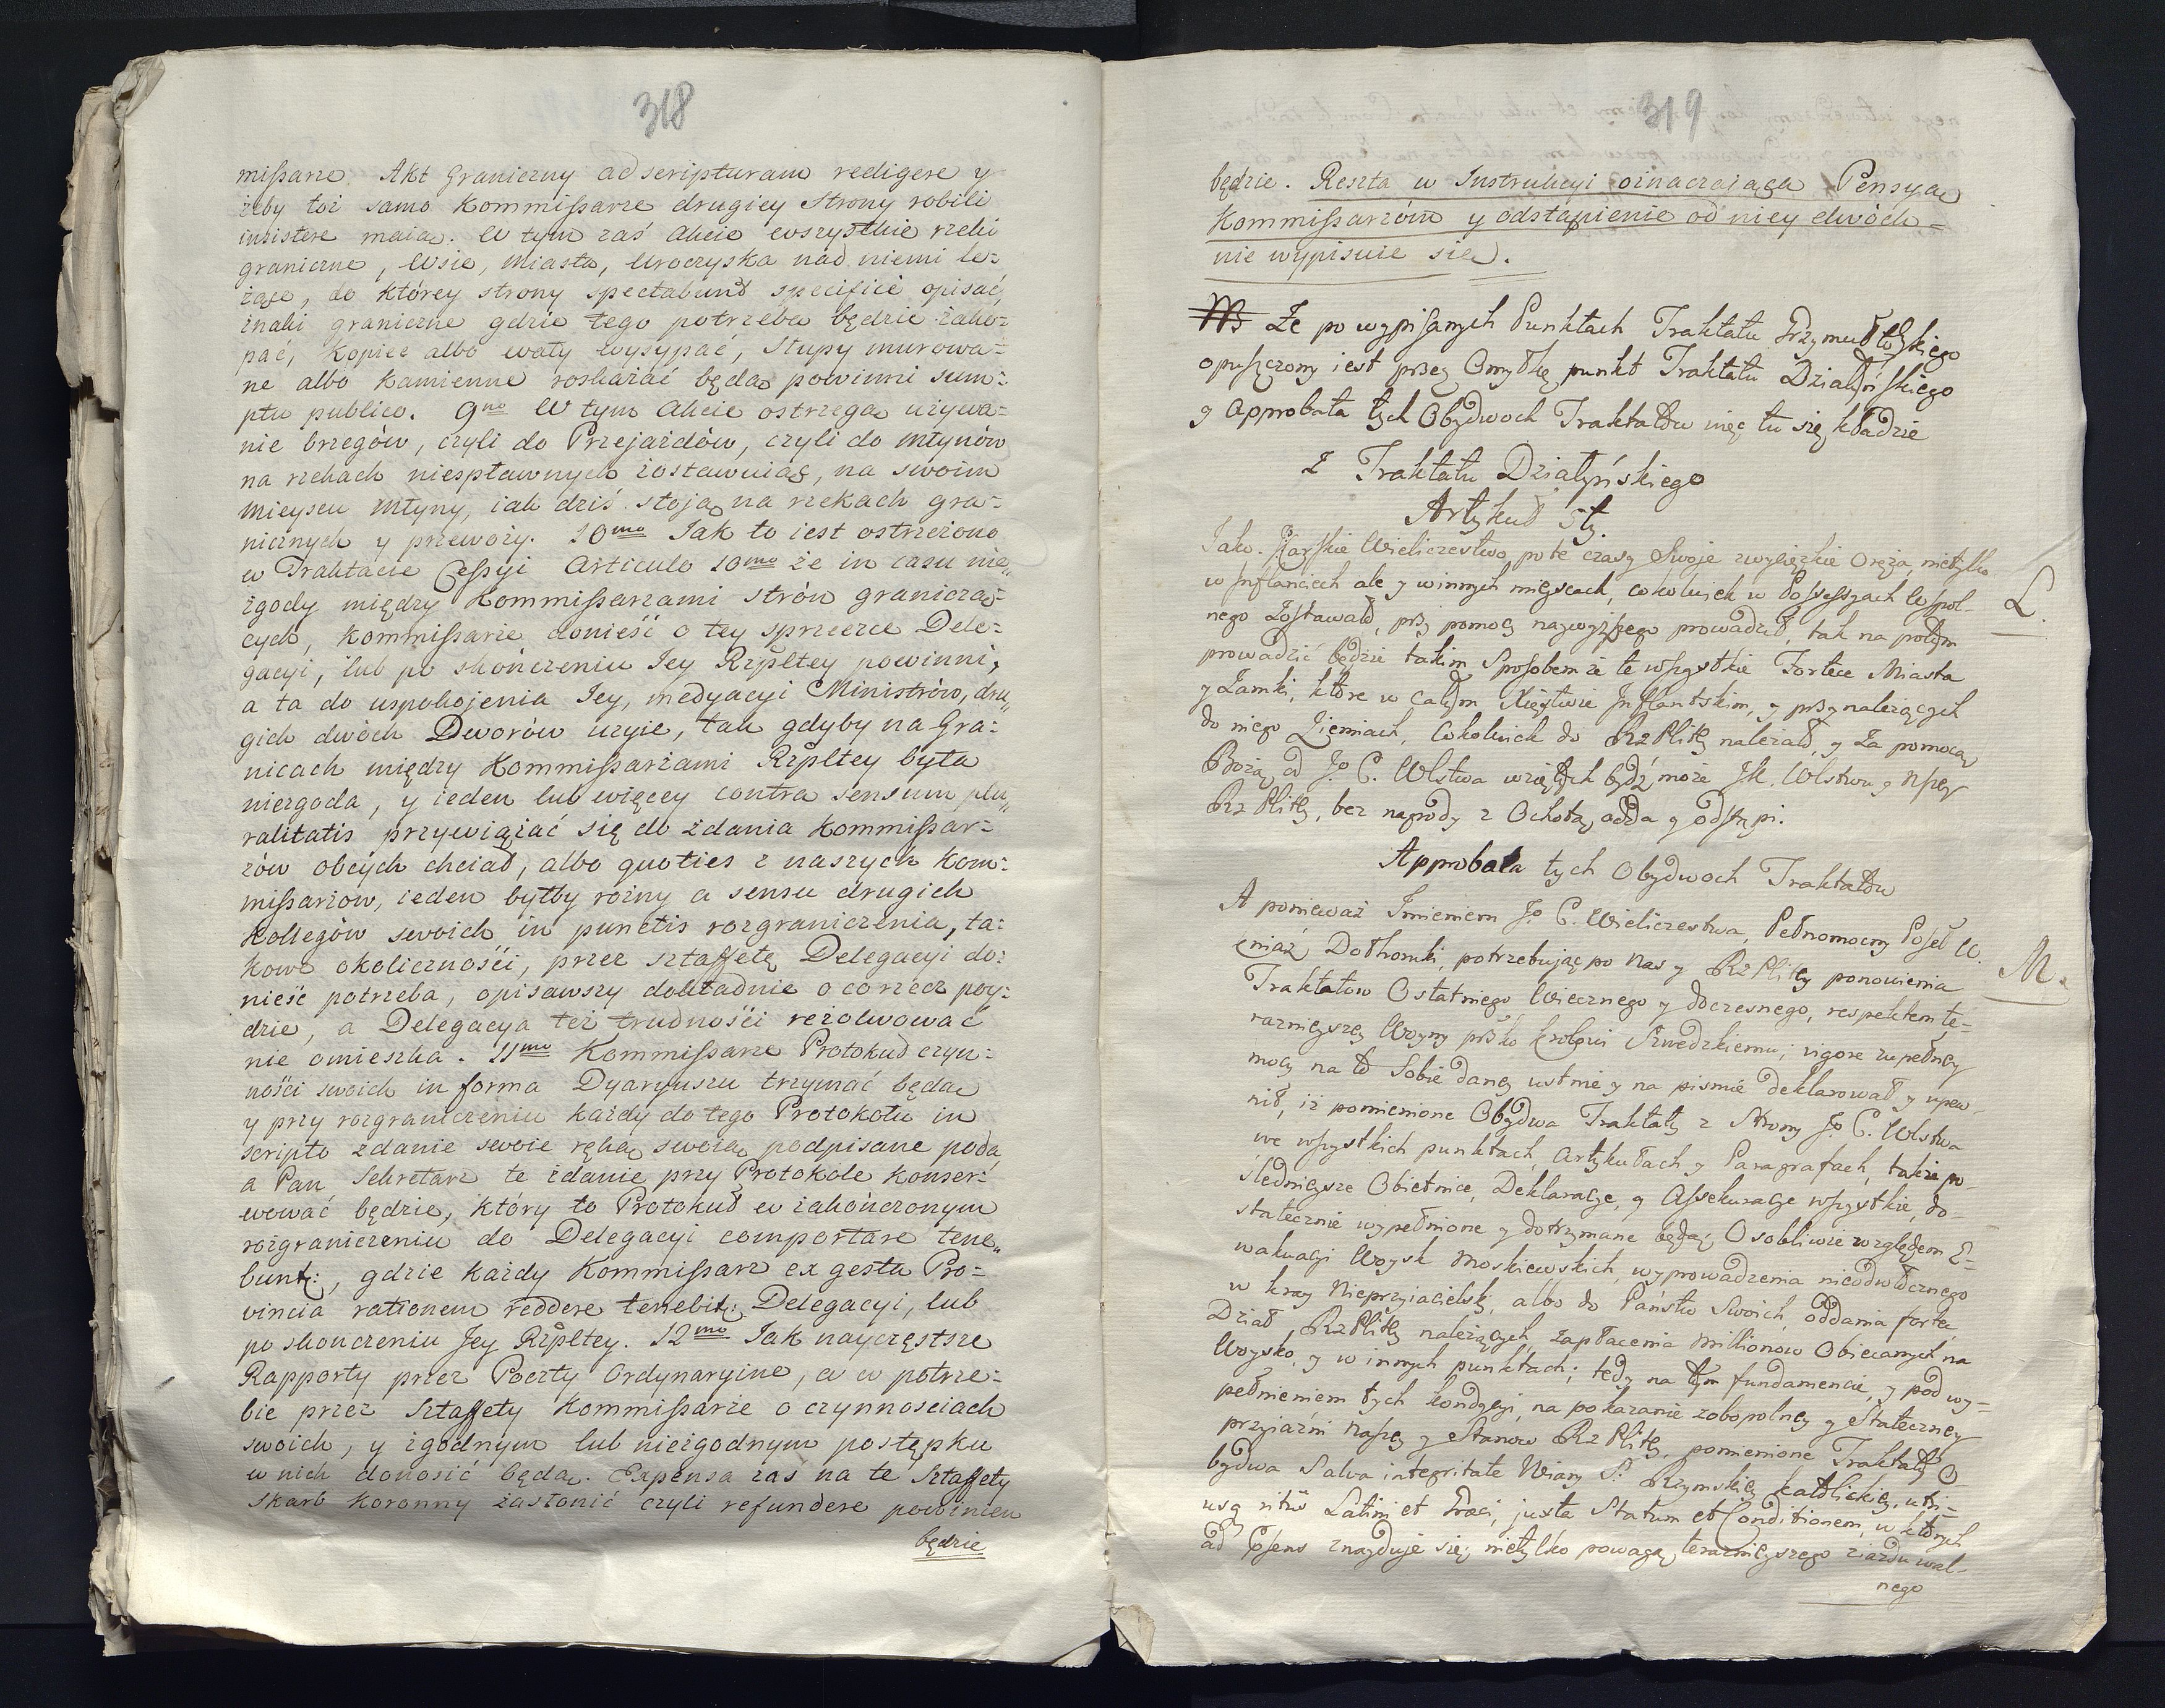 318
mißarze Akt Graniczny ad scripturam redigere y
żeby toż samo Kommißarze drugiey Strony robili
insistere maią. W tym zaś Akcie wszystkie rzeki
graniczne, Wsie, Miasta, Uroczyska nad niemi le=
żące, do którey strony spectabunt specificè opisać,
znaki graniczne gdzie tego potrzeba będzie zako=
pać, Kopiec albo wały wysypać, Słupy murowa=
ne albo Kamienne roskazać będą powinni sum=
ptu publico. 9no W tym Akcie ostrzegą używa=
nie brzegów, czyli do Przejazdów, czyli do młynów
na rzekach niespławnych zostawuiąc, na swoim
mieyscu młyny, iak dziś stoją na rzekach gra=
nicznych y przewozy. 10mo Jak to iest ostrzeżono
w Traktacie Ceßyi Articulo 10mo że in casu nie„
zgody między Kommißarzami strón granicza=
cych, Kommißarze donieść o tey sprzeczce Dele=
gacyi, lub po skończeniu Jey Rzpltey powinni,
a ta do uspokojenia Jey, medyacyi Ministrów, dru„
gich dwóch Dworów użyie, tak gdyby na Gra=
nicach między Kommißarzami Rzpltey była
niezgoda, y ieden lub więcey contra sensum plu„
ralitatis przywiązać się do zdania Kommißar=
zów obcych chciał, albo quoties z naszych Kom=
mißarzow, ieden byłby rożny a sensu drugich
Kollegów swoich in punctis rozgraniczenia, ta=
kowe okoliczności, przez sztaffetę Delegacyi do=
nieść potrzeba, opisawszy dokładnie o co rzecz poy=
dzie, a Delegacya też trudności reżolwować
nie omieszka. 11mo Kommißarze Protokuł czyn=
ności swoich in forma Dyaryuszu trzymać będą
y przy rozgraniczeniu każdy do tego Protokołu in
scripto zdanie swoie ręką swoią podpisane poda
a Pan Sekretarz te zdanie przy Protokole Konser=
wować będzie, który to Protokuł w zakończonym
rozgraniczeniu do Delegacyi comportare tene„
bunt:, gdzie każdy Kommißarz ex gesta Pro=
vincia rationem reddere tenebit: Delegacyi, lub
po skonczeniu Jey Rzpltey. 12mo Jak nayczęstsze
Rapporty przez Poczty Ordynaryine, a w potrze=
bie przez Sztaffety Kommißarze o czynnosciach
swoich, y zgodnym lub niezgodnym postępku
w nich donosić będą. Expensa zaś na te Sztaffety
Skarb Koronny zasłonić czyli refundere powinien
będzie
319
będzie. Reszta w Instrukcyi oznaczaiąca Pensyą
Kommißarzów y odstąpienie od niey dwóch=
nie wypisuie się.
NB Że po wypisanych Punktach Traktatu Grzymułtowskiego
opuszczony iest przez Omyłkę punkt Traktatu Działyńskiego
y Approbata tych Obydwoch Traktatów więc tu się kładzie
Z Traktatu Działyńskiego
Artykuł 5ty
Jako. Carskie Wieliczestwo, po te czasy Swoje zwycięzkie Oręża, nietylko
w Inflanciech ale y winnych mieyscach, cokolwiek w Possessyach Szwedz-
nego Zostawał, przy pomocy naywyższego prowadził, tak na potym
prowadzić będzie takim Sposobem że te wszystkie Fortece Miasta
y Zamki, które w całym Xięstwie Inflantskim, y przynależących
do niego Ziemiach, Cokolwiek do RzPlitey należał, y za pomocą
Bożą, od Jo C. Wlstwa wziętych bydź może JK. Wlstwu y Npey
RzPlitey, bez nagrody z Ochotą, odda y odstąpi.
L.
Approbata tych Obydwoch Traktatów
A ponieważ Imieniem Jo C. Wieliczestwa, Pełnomocny Poseł W.
Kniaź Dołhoruki, potrzebując po Nas y RzPlitey ponowienia
Traktatow Ostatniego Wiecznego y doczesnego, respektem te=
razniejszey Woyny prżko Krolowi Szwedzkiemu, vigore zupełney
mocy na to Sobie daney ustnie y na pismie deklarował y upew-
nił, iż pomienione Obydwa Traktaty z Strony Jo C. Wlstwa
we wszystkich punktach, Artykułach y Paragrafach, także po-
śledniejsze Obietnice, Deklaracye, y Assekuracye wszystkie, do-
statecznie wypełnione y dotrzymane będą, Osobliwie względem E=
wakuacyi Woysk Moskiewskich, wyprowadzenia nieodwłocznego
w kray Nieprzyiacielski, albo do Państw Swoich, oddania fortec
Dział RzPlitey należących, zapłacenia Millionow Obiecanych na
Woysko, y w innych punktach; tedy na tym fundamencie, y pod wy=
pełnieniem tych kondycyi, na pokazanie zobopolney y Stateczney
przyiaźni Naszey y Stanow RzPlitey, pomienione Traktaty O-
bydwa Salva integritate Wiary S. Rzymskiey katolickiey, utri=
usq ritus Latini et Græci, juxta Statum et Conditionem, w ktorych
ad præsens znayduje się, nietylko powagą terazniejszego ziazdu wal-
nego
M.